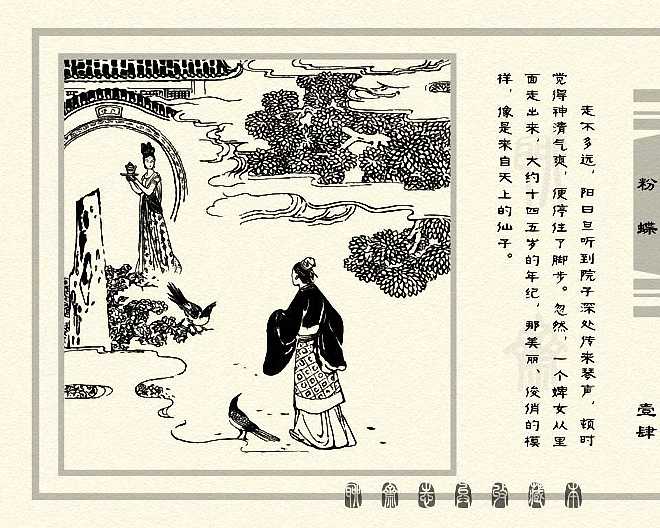 走不多远，阳日旦听到院子深处传来琴声，顿时
觉得神清气爽，便停住了脚步。忽然，一个婢女从里
面走出来，大约十四五岁的年纪，那美丽、俊俏的模
样，像是来自天上的仙子。
粉蝶
壹肆